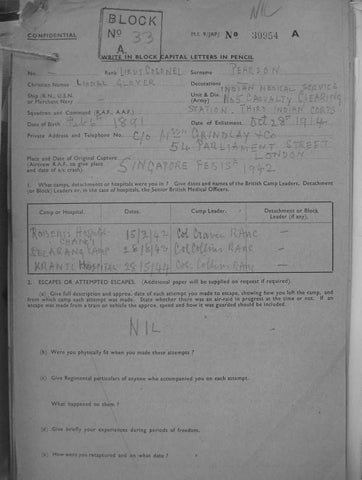 NIL
BLOCK
No 33
A.
CONFIDENTIAL
M.I. 9/JAP/ No 30954 A
WRITE IN BLOCK CAPITAL LETTERS IN PENCIL
No. Rank LIEUT COLONEL Surname PEARSON
Christian Names LIONEL GLOVER Decorations
Ship (R.N., U.S.N. or Merchant Navy) Unit & Div. (Army) INDIAN MEDICAL SERVICE
No 5 CASUALTY CLEARING
Squadron and Command (R.A.F., A.A.F.) STATION. THIRD INDIAN CORPS
Date of Birth 1891 Date of Enlistment Oct 28th 1914
Private Address and Telephone No. C/O GRINDLAY & Co
54 PARLIAMENT STREET
LONDON
Place and Date of Original Capture SINGAPORE FEB 15th 1942
(Aircrew R.A.F. to give place and date of a/c crash)
1. What camps, detachments or hospitals were you in? Give dates and names of the British Camp Leaders, Detachment
or Block Leaders or, in the case of hospitals, the Senior British Medical Officers.
Camp or Hospital. Dates. Camp Leader. Detachment or Block Leader (if any).
ROBERTS HOSPITAL CHANGI 15/3/42 Col Craven RAMC
SELARANG CAMP Col Collins RAMC
KRANJI HOSPITAL 28/5/44 Col. Collins RAMC
2. ESCAPES OR ATTEMPTED ESCAPES. (Additional paper will be supplied on request if required).
(a) Give full description and approx. date of each attempt you made to escape, showing how you left the camp, and
from which camp each attempt was made. State whether there was an air-raid in progress at the time or not. If an
escape was made from a train or vehicle the approx. speed and how it was guarded should be included.
NIL
(b) Were you physically fit when you made these attempts?
(c) Give Regimental particulars of anyone who accompanied you on each attempt.
What happened to them?
(d) Give briefly your experiences during periods of freedom.
(e) How were you recaptured and on what date?